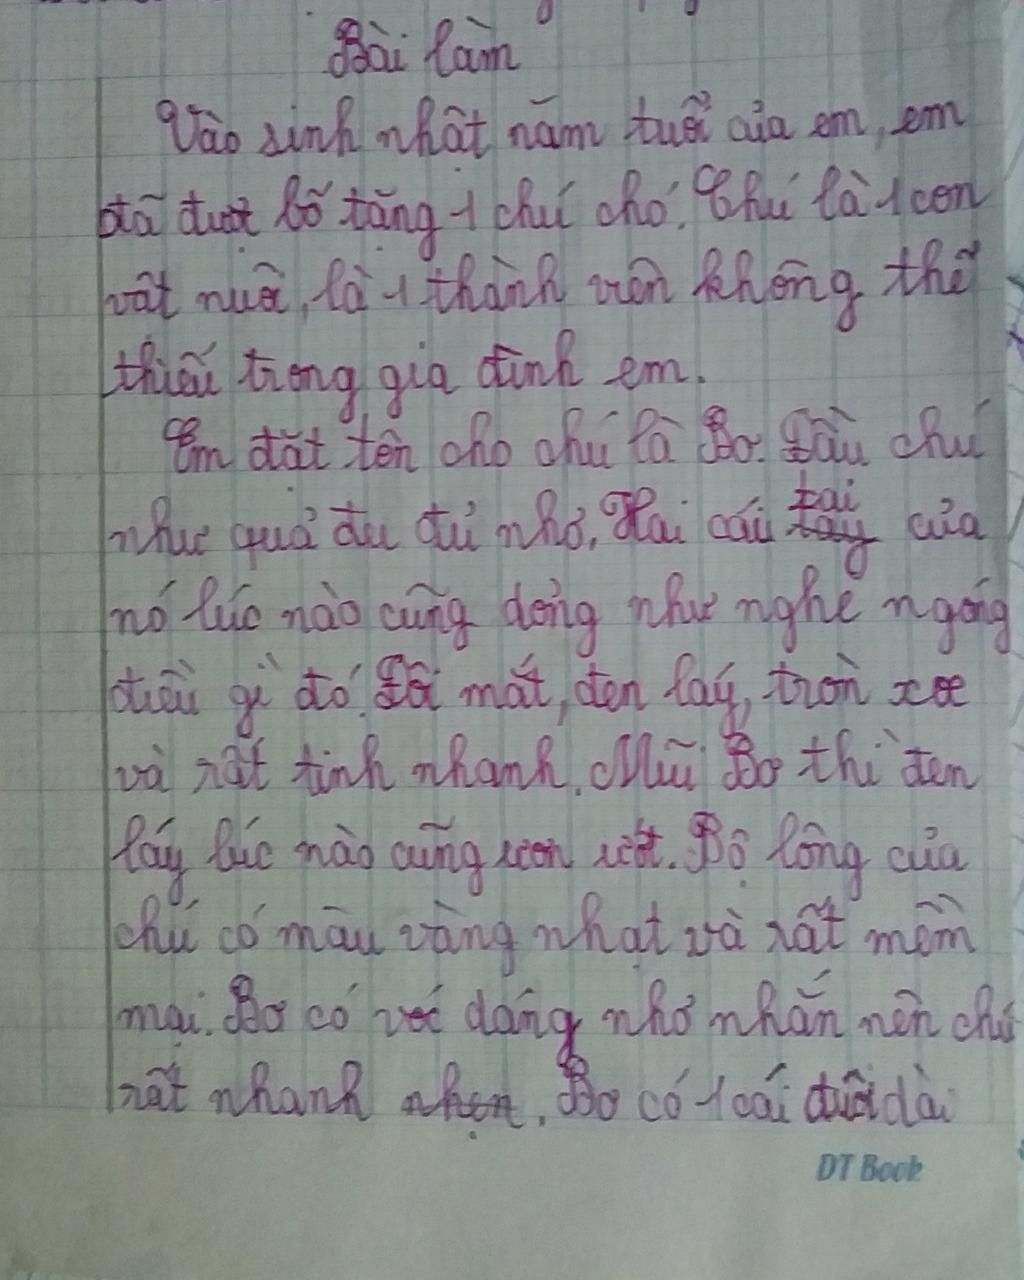 Bài làm
Vào sinh nhật năm tuổi của em, em
đã được bố tặng 1 chú chó. Chú là 1 con
vật nuôi, là 1 thành viên không thể
thiếu trong gia đình em.
Em đặt tên cho chú là Bơ. Đầu chú
như quả đu đủ nhỏ. Hai cái tai của
nó lúc nào cũng dỏng như nghe ngóng
điều gì đó. Đôi mắt, đen láy, tròn xoe
và rất tinh nhanh. Mũi Bơ thì đen
láy lúc nào cũng ươn ướt. Bộ lông của
chú có màu vàng nhạt và rất mềm
mại. Bơ có vóc dáng nhỏ nhắn nên chú
rất nhanh nhẹn. Bơ có 1 cái đuôi dài
DT Book